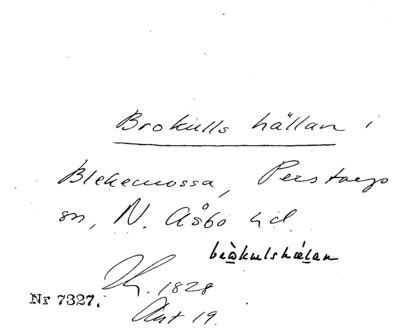 Brokulls hällan i
Blekemossa, Perstorps
sn, N. Åsbo hd.
1828
Nr 7327.
Ant 19.